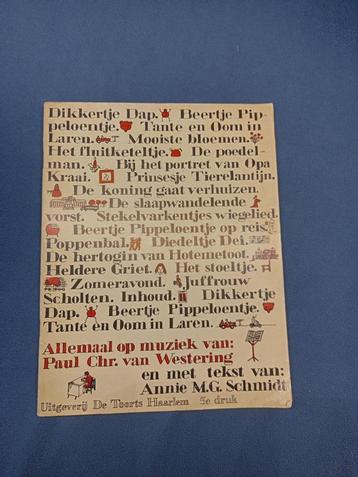 Dikkertje Dap. Beertje Pip-
peloentje. Tante en Oom in
Laren. Mooiste bloemen.
Het fluitketeltje. De poedel-
man. Bij het portret van Opa
Kraai. Prinsesje Tierelantijn.
De koning gaat verhuizen.
De slaapwandelende
vorst. Stekelvarkentjes wiegelied.
Beertje Pippeloentje op reis.
Poppenbal. Diedeltje Dei.
De hertogin van Hotemetoot.
Heldere Griet. Het stoeltje.
Zomeravond. Juffrouw
Scholten. Inhoud. Dikkertje
Dap. Beertje Pippeloentje.
Tante en Oom in Laren.
Allemaal op muziek van:
Paul Chr. van Westering
en met tekst van:
Annie M.G. Schmidt
Uitgeverij De Toorts Haarlem 5e druk